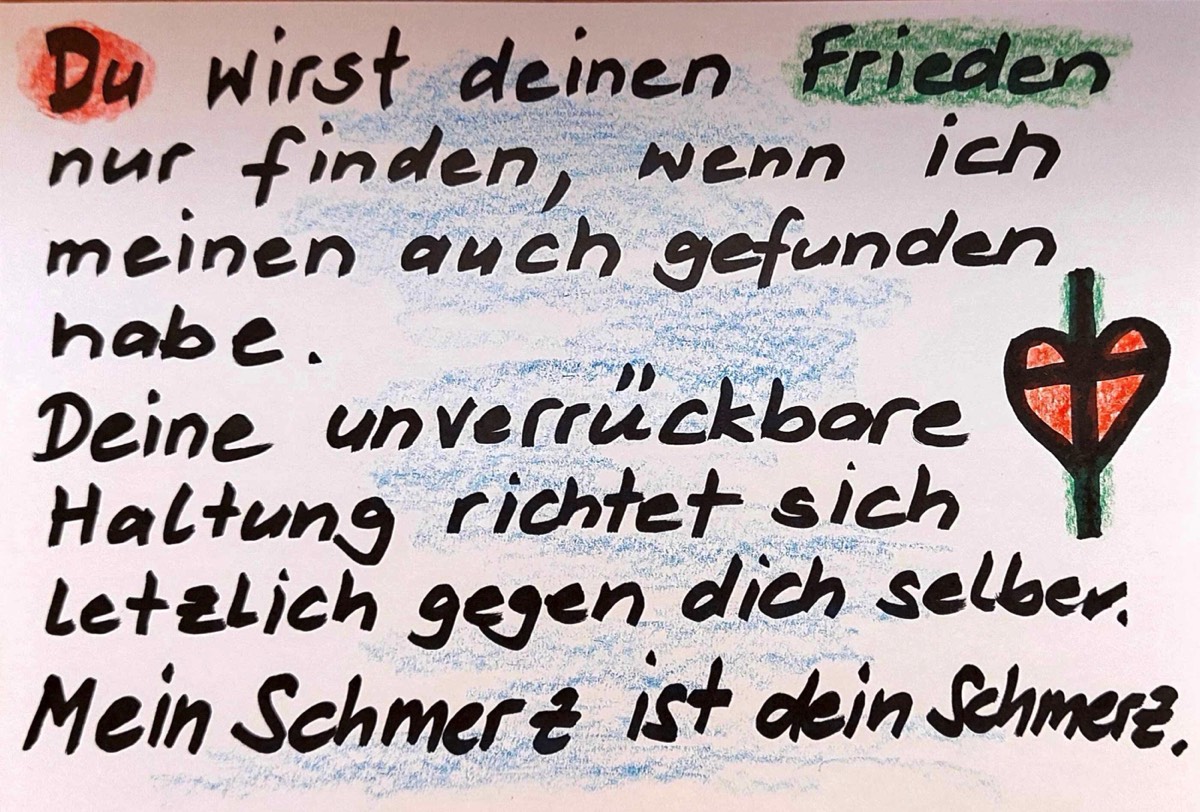 Du wirst deinen Frieden
nur finden, wenn ich
meinen auch gefunden
habe.
Deine unverrückbare
Haltung richtet sich
letzlich gegen dich selber.
Mein Schmerz ist dein Schmerz.